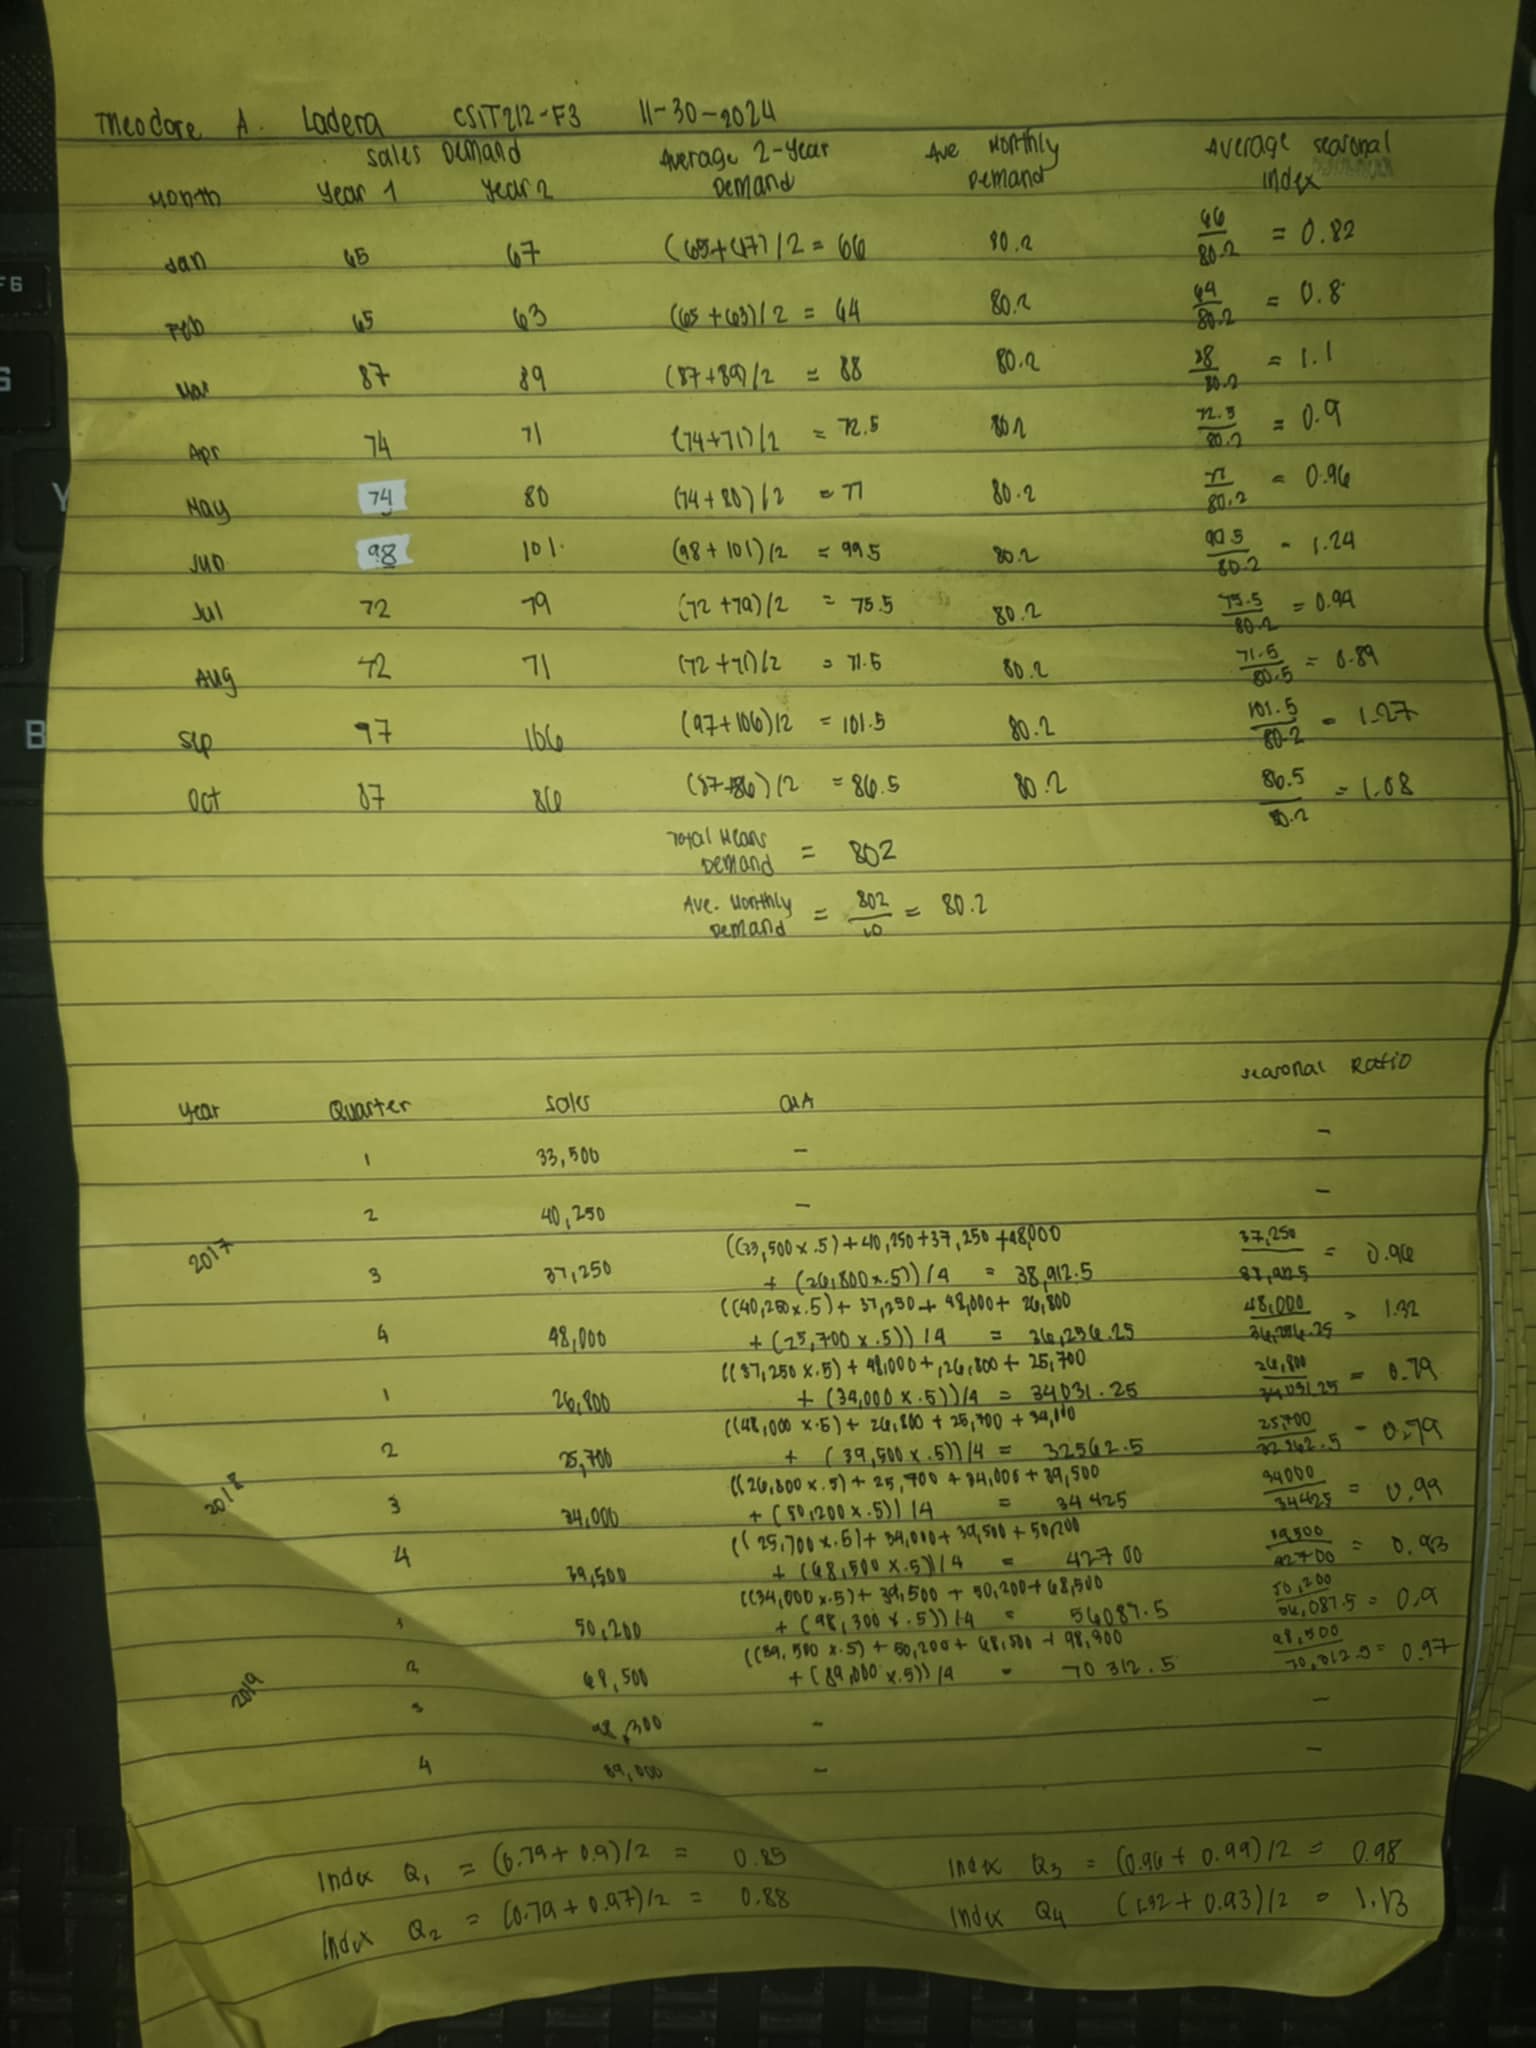 Theodore A. Ladera CSIT212-F3 11-30-2024
Sales Demand Average 2-Year Ave Monthly Average seasonal
Month Year 1 Year 2 Demand Demand index
Jan 65 67 (65+67)/2 = 66 80.2 66/80.2 = 0.82
Feb 65 63 (65+63)/2 = 64 80.2 64/80.2 = 0.8
Mar 87 89 (87+89)/2 = 88 80.2 88/80.2 = 1.1
Apr 74 71 (74+71)/2 = 72.5 80.2 72.5/80.2 = 0.9
May 74 80 (74+80)/2 = 77 80.2 77/80.2 = 0.96
Jun 98 101 (98+101)/2 = 99.5 80.2 99.5/80.2 = 1.24
Jul 72 79 (72+79)/2 = 75.5 80.2 75.5/80.2 = 0.94
Aug 72 71 (72+71)/2 = 71.5 80.2 71.5/80.5 = 0.89
Sep 97 106 (97+106)/2 = 101.5 80.2 101.5/80.2 = 1.27
Oct 87 86 (87+86)/2 = 86.5 80.2 86.5/80.2 = 1.08
Total Means
Demand = 802
Ave. Monthly
Demand = 802/10 = 80.2
Year Quarter Sales CMA Seasonal Ratio
1 33,500 - -
2 40,250 - -
2017
((33,500x.5)+40,250+37,250+48,000
3 37,250 + (26,800x.5))/4 = 38,912.5 37,250/38,912.5 = 0.96
((40,250x.5)+ 37,250+ 48,000+ 26,800
4 48,000 + (25,700 x .5))/4 = 36,256.25 48,000/36,256.25 = 1.32
((37,250 x.5) + 48,000+ ,26,800+ 25,700
1 26,800 + (34,000 x .5))/4 = 34031.25 26,800/34031.25 = 0.79
((48,000 x.5)+ 26,800 + 25,700 + 34,000
2 25,700 + (39,500 x .5))/4 = 32562.5 25,700/32562.5 = 0.79
2018
((26,800 x.5)+ 25,700 + 34,000 + 39,500
3 34,000 + (50,200x.5))/4 = 34425 34000/34425 = 0.99
((25,700 x.5)+ 34,000+ 39,500 + 50,200
4 39,500 + (68,500 x.5))/4 = 42700 39500/42700 = 0.93
((34,000 x.5)+ 39,500 + 50,200+68,500
1 50,200 + (98,300 x.5))/4 = 56087.5 50,200/56,087.5 = 0.9
((39,500 x.5) + 50,200+ 68,500 + 98,300
2 68,500 + (89,000 x.5))/4 = 70312.5 68,500/70,312.5 = 0.97
2019
3 98,300 - -
4 89,000 - -
Index Q1 = (0.79+ 0.9)/2 = 0.85 Index Q3 = (0.96+ 0.99)/2 = 0.98
Index Q2 = (0.79+0.97)/2 = 0.88 Index Q4 (1.32+ 0.93)/2 = 1.13
F6
Y
B